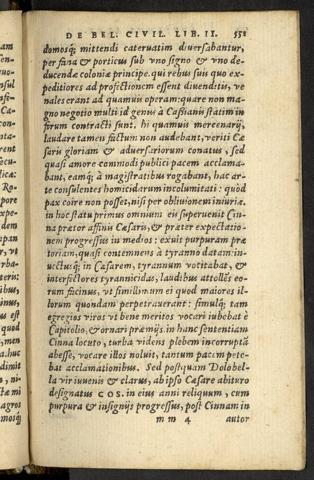 DE BEL. CIVIL. LIB. II. 551
domosq; mittendi cateruatim diuersabantur,
per fana & porticus sub vno signo & vno de-
ducendæ coloniæ principe. qui rebus suis quo ex-
peditiores ad profectionem essent diuenditis, ve-
nales erant ad quamuis operam: quare non ma-
gno negotio multi id genus à Cassianis statim in
forum contracti sunt. hi quamuis mercenarij,
laudare tamen factum non audebant, veriti Cæ
saris gloriam & aduersariorum conatus, sed
quasi amore commodi publici pacem acclama-
bant, eamq; à magistratibus rogabant, hac ar-
te consulentes homicidarum incolumitati: quòd
pax coire non posset, nisi per obliuionem iniuriæ.
in hoc statu primus omnium eis superuenit Cin-
na prætor affinis Cæsaris, & præter expectatio-
nem progressus in medios: exuit purpuram præ
toriam, quasi contemnens à tyranno datam: in-
uectusq; in Cæsarem, tyrannum vocitabat, &
interfectores tyrannicidas, laudibus attollēs eo-
rum facinus, vt simillimum ei quod maiores il-
lorum quondam perpetrauerant: simulq; tam
egregios viros vt bene meritos vocari iubebat è
Capitolio, & ornari præmijs. in hanc sententiam
Cinna locuto, turba videns plebem incorruptā
abesse, vocare illos noluit, tantum pacem pete-
bat acclamationibus. Sed postquam Dolobel-
la vir iuuenis & clarus, ab ipso Cæsare abituro
designatus COS. in eius anni reliquum, cum
purpura & insignijs progressus, post Cinnam in
m m 4 autor